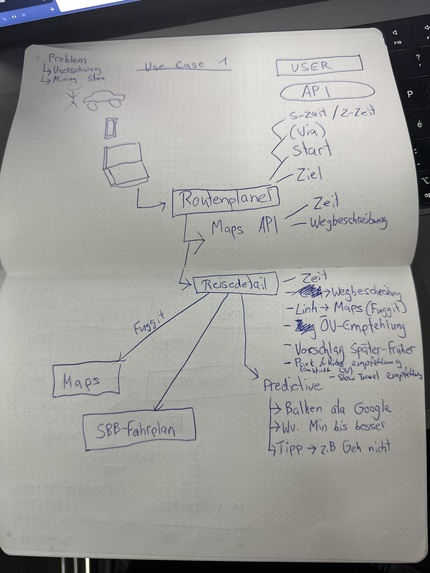 Problem
↳ Überschneidung
Use Case 1
USER
API
S-Zeit / Z-Zeit
(Via)
Start
Ziel
Routenplaner
Maps API
Zeit
Wegbeschreibung
Reisedetail
- Zeit
→ Wegbeschreibung
- Link → Maps (Fuggit)
ÖV-Empfehlung
- Vorschlag Später-Früher
- Park & Ride empfehlung
- Slow Travel empfehlung
Fuggit
Maps
SBB-Fahrplan
Predictive
→ Balken ala Google
→ Wv. Min bis besser
↳ Tipp → z.B Geh nicht